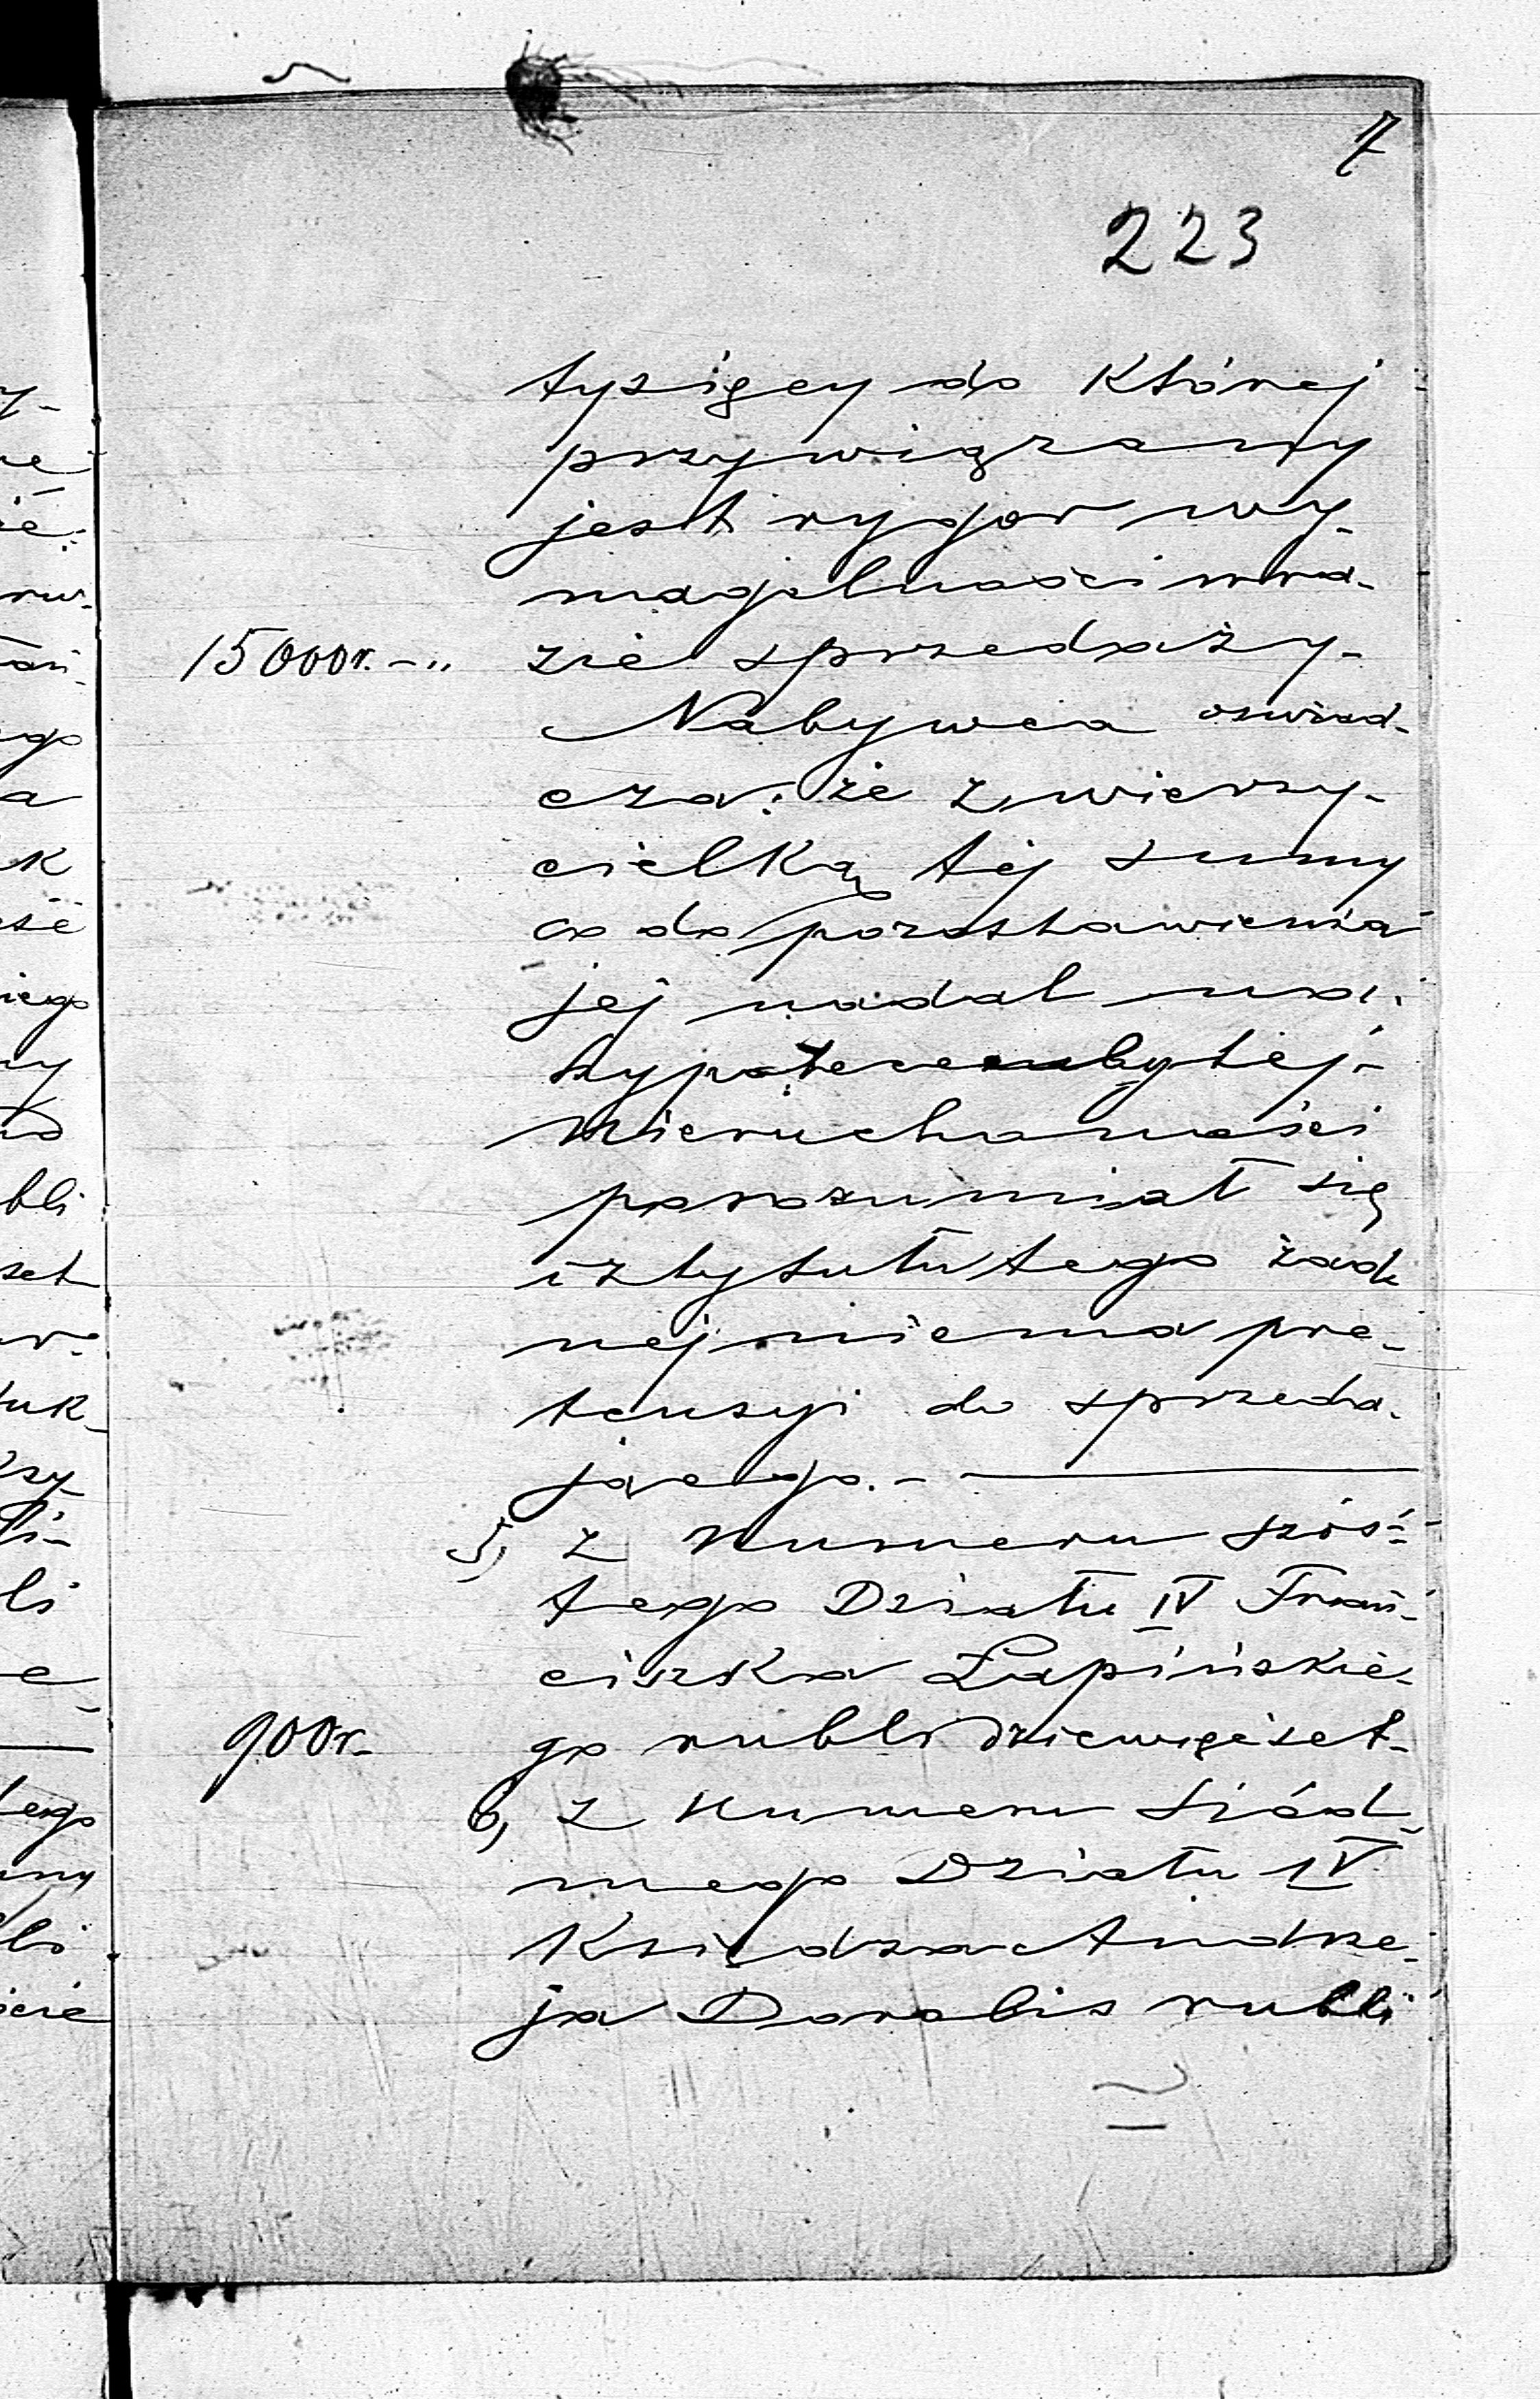 7
223
tysięcy do której
przywiązany
jest rygor wy-
magalności w ra-
15000r. - " zie sprzedaży.
Nabywca oświad-
cza: że z wierzy-
cielką tej summy
co do pozostawienia
jej nadal na
hypotece nabytej
Nieruchomości
porozumiał się
i z tytułu tego żad-
nej niema pre-
tensyi do sprzeda-
jącego. -
5, z Numeru szós-
tego Działu IV Fran-
ciszka Łapińskie-
900r. go rubli dziewięćset.
6, z Numeru siód-
mego Działu IV
Księdza Andrze-
ja Dorobis rubli